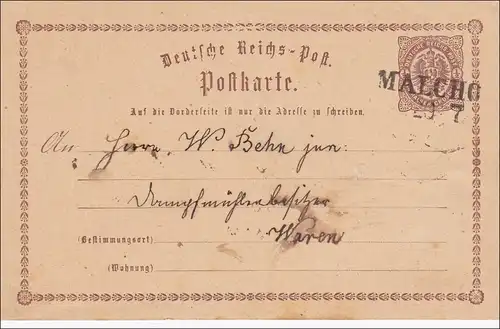 Deutsche Reichs-Post.
Postkarte.
MALCHO
7
Auf die Vorderseite ist nur die Adresse zu schreiben.
An Herrn W. Behn jun:
Dampfmühlenbesitzer
Waren
(Bestimmungsort)
(Wohnung)